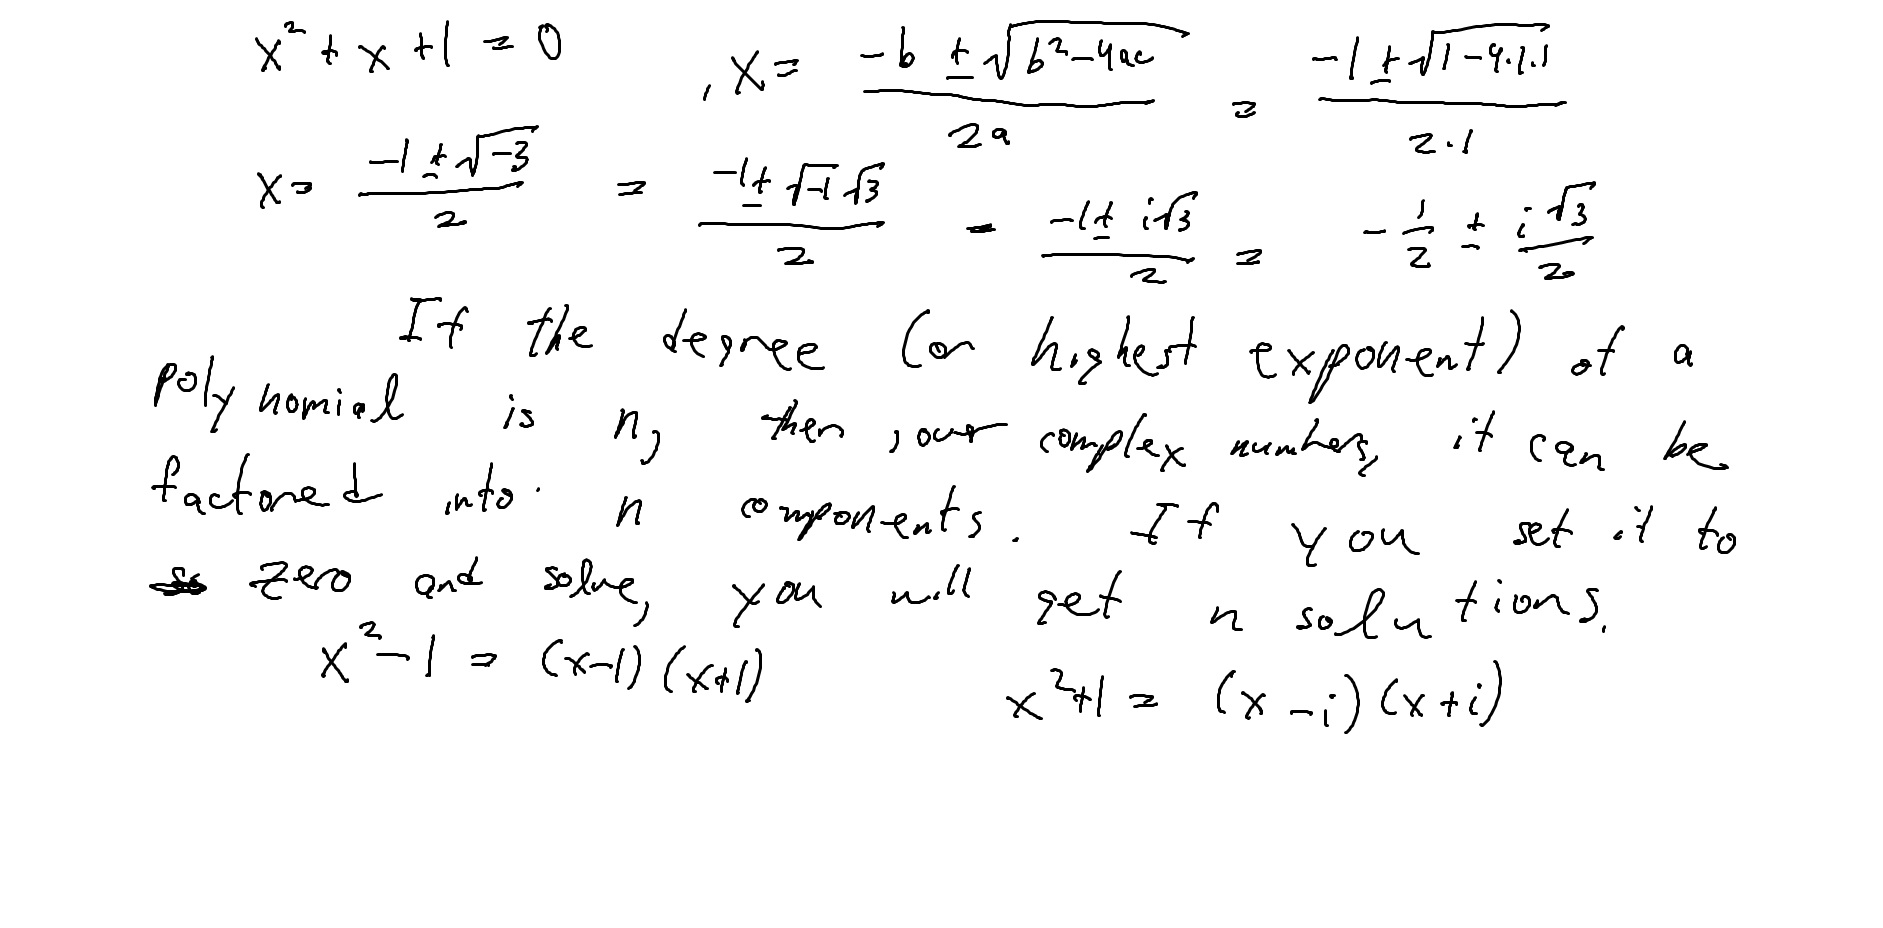 x² + x + 1 = 0 , x = (-b ± √(b²-4ac))/(2a) = (-1 ± √(1-4·1·1))/(2·1)
x = (-1 ± √-3)/2 = (-1 ± √-1 √3)/2 = (-1 ± i√3)/2 = -1/2 ± i√3/2
If the degree (or highest exponent) of a
polynomial is n, then, over complex numbers, it can be
factored into n components. If you set it to
zero and solve, you will get n solutions.
x²-1 = (x-1)(x+1) x²+1 = (x-i)(x+i)